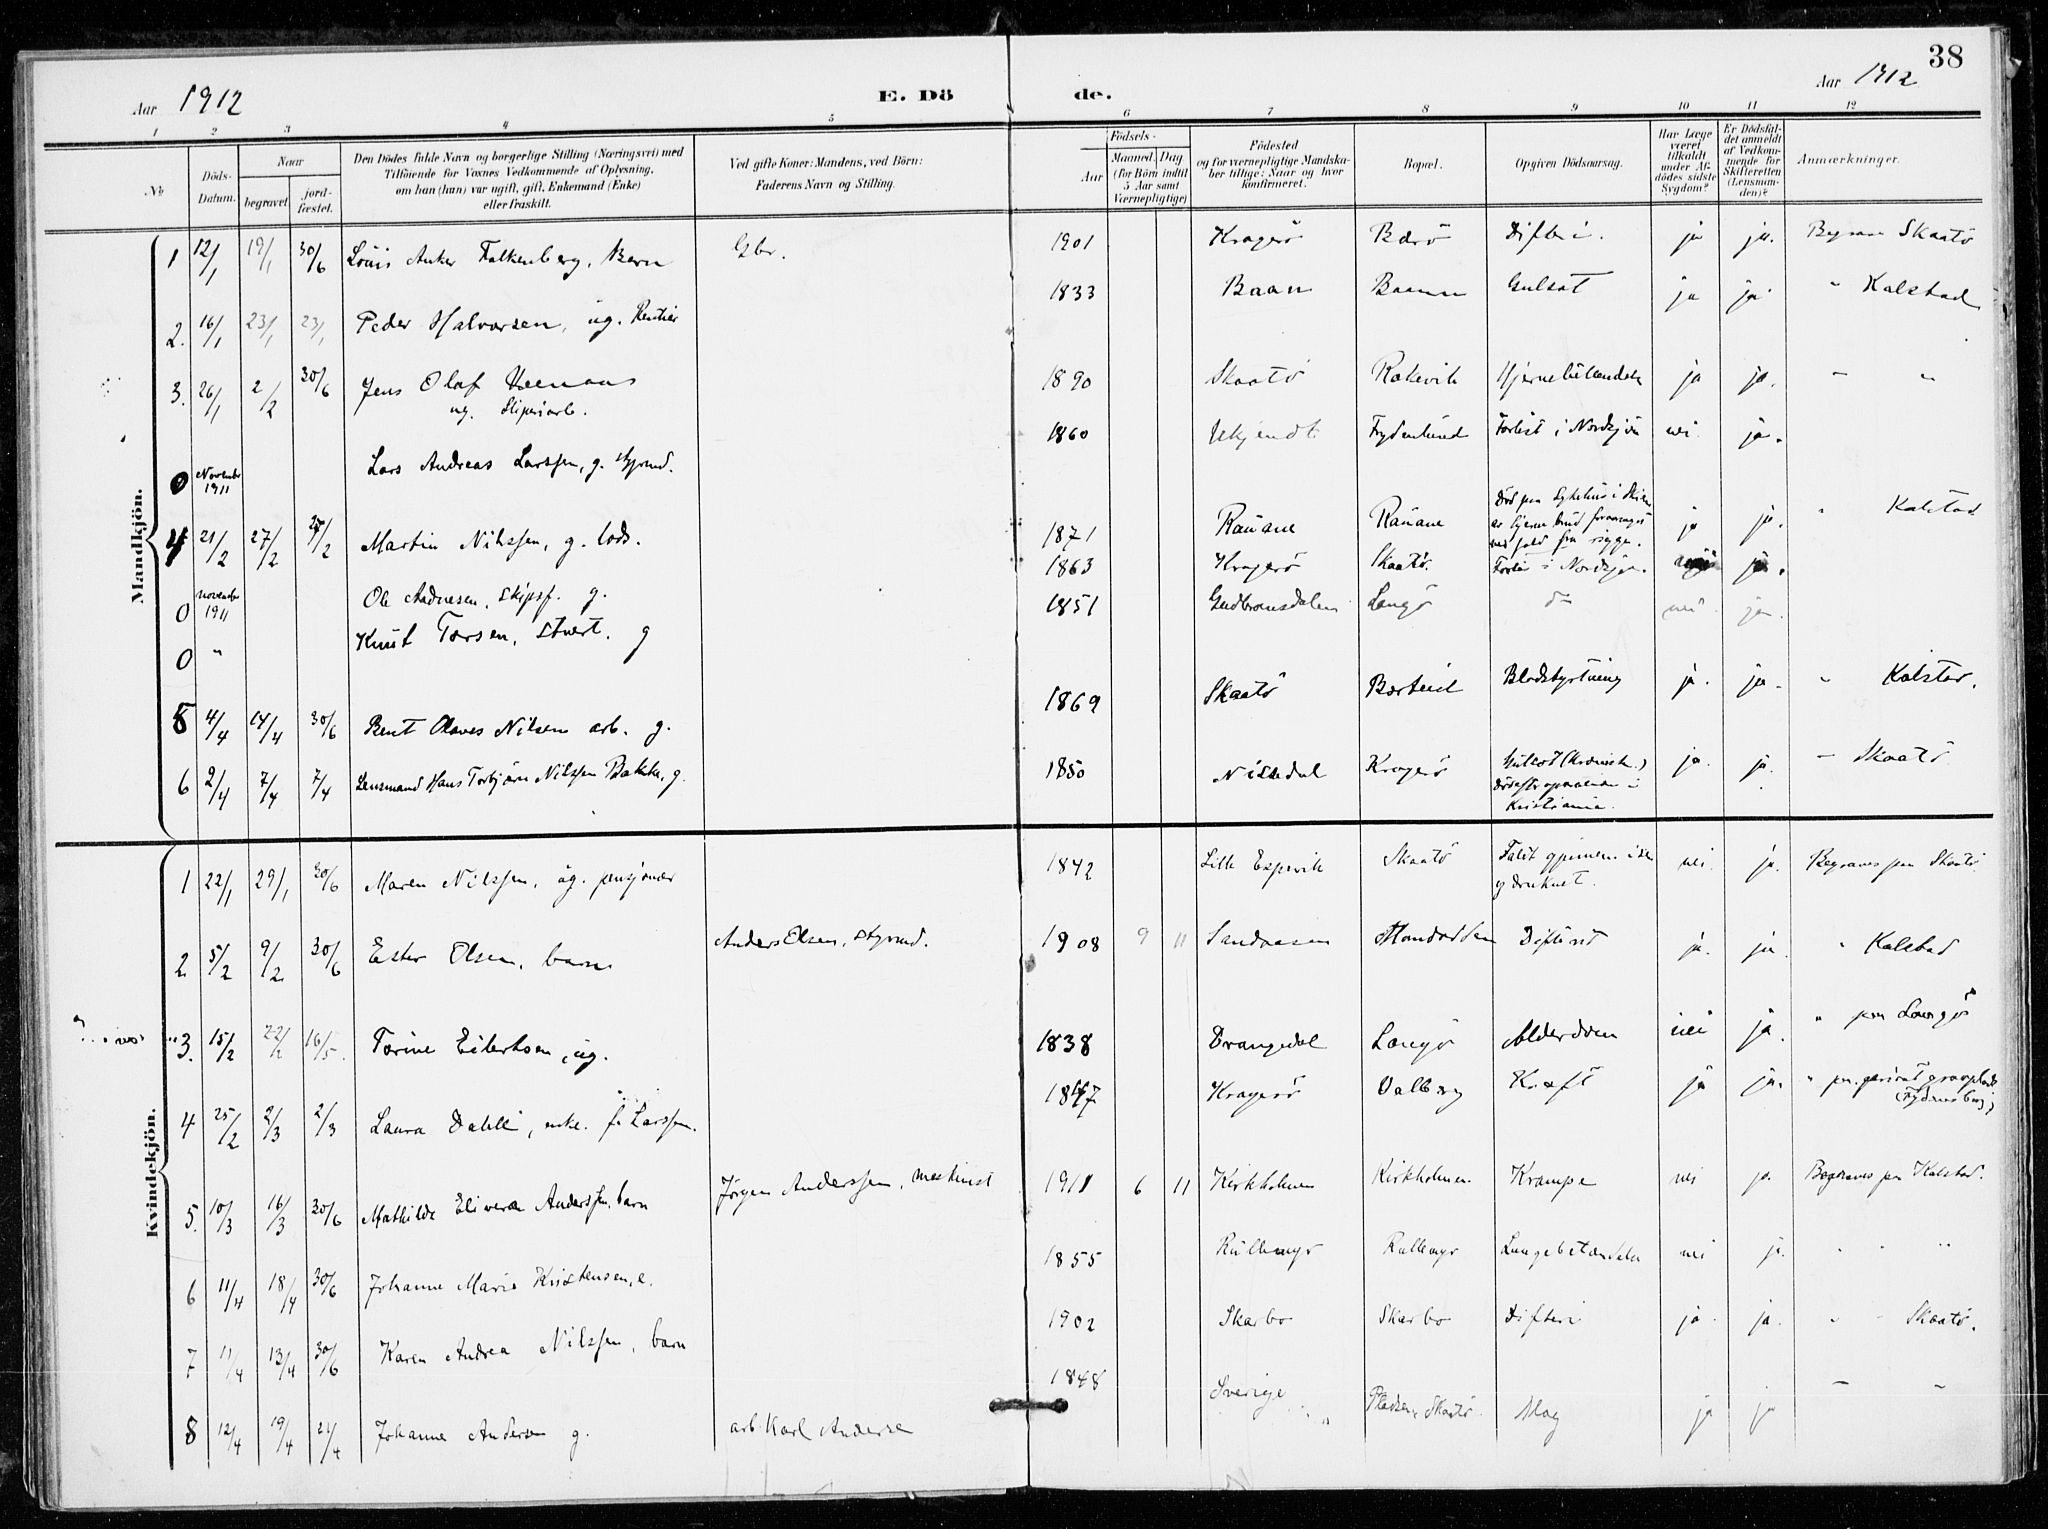 38
Aar 1912 E. Dö de. Aar 1912
1 2 3 4 5 6 7 8 9 10 11 12
No
Döds-
Datum.
Naar
begravet.
jord-
fæstet.
Den Dödes fulde Navn og borgerlige Stilling (Næringsvei) med
Tilföiende for Voxnes Vedkommende af Oplysning,
om han (hun) var ugift, gift, Enkemand (Enke)
eller fraskilt.
Ved gifte Koner: Mandens, ved Börn:
Faderens Navn og Stilling.
Födsels-
Aar
Maaned. Dag
(for Börn indtil
5 Aar samt
Værnepligtige)
Födested
og for værnepligtige Mandska-
ber tillige: Naar og hvor
konfirmeret.
Bopæl.
Opgiven Dödsaarsag.
Har Læge
været
tilkaldt
under Af-
dödes sidste
Sygdom?
Er Dödsfal-
det anmeldt
af Vedkom-
mende for
Skifteretten
(Lensman-
den)?
Anmærkninger.
Mandkjön.
1 12/1 19/1 30/6 Louis Anker Falkenberg, Barn Gbr. 1901 Kragerö Bærö Difteri. ja ja. Begrave Skaatö
2. 16/1 23/1 23/1 Peder Halvorsen, ug. Rentier 1833 Baan Baann Gulsot ja ja " Kalstad
3. 26/1 2/2 30/6 Jens Olaf
ug. Sliperiarb. 1890 Skaatö Rakevik ja ja. — "
0 November
1911 Lars Andreas Larssen, g. styrmd. 1860 Ukjendt Frydenlund Forlist i Nordsjöen nei ja.
4 21/2 27/2 27/2 Martin Nilssen, g. lods. 1871 Rauane Rauane Död paa Sykehus i
ved fald fra rigge. ja ja. " Kalstad
0 november
1911 Ole Aadnesen, skipsf. g. 1863 Kragerö Skaatö. Forlist i Nordsjöen. ja.
0 " Knut Torsen, stuert. g 1851 Gudbransdalen Langö do nei ja.
5 4/4 14/4 30/6 Bent Olaves Nilsen arb. g. 1869 Skaatö Blodstyrtning ja. ja. " Kalstad.
6 2/4 7/4 7/4 Lensmand Hans Torbjörn Nilssen Bakka, g. 1850 Nissedal Kragerö Gulsot (Kronisk.)
död efter operation i
Kristiania. ja. ja. — Skaatö
Kvindekjön.
1 22/1 29/1 30/6 Maren Nilssen, ug. pensjonær 1842 Lille Espevik Skaatö Faldt gjennem isen
og druknet. nei. ja. Begraves paa Skaatö.
2 5/2 9/2 30/6 Ester Olsen, barn Anders Olsen, styrmd. 1908 9 11 Sandaasen Difterit ja. ja " Kalstad
3. 15/2 22/2 16/5. Torine Eilertsen, ug. 1838 Drangedal Langö Alderdom nei ja. " paa Langö
4 25/2 2/3 2/3 Laura Dahll, enke. f. Larssen. 1847 Kragerö Valberg Kræft ja ja. " paa privat gravplads
5. 10/3 16/3 30/6 Mathilde Elivera Anderssen, barn Jörgen Anderssen, maskinist 1911 6 11 Kirkholmen Kirkholmen Krampe nei ja. Begraves paa Kalstad.
6 11/4 18/4 30/6 Johanne Marie Kristensen, e. 1855 Rullemyr Rullemyr Lungebetændelse nei ja. " " "
7 11/4 13/4 30/6 Karen Andrea Nilssen, barn 1902 Skarbo Skarbo Difteri ja. ja. " " Skaatö.
8 12/4 19/4 21/4 Johanne Andersen g. arb. Karl Andersen 1848 Sverige Pladsen, Skaatö. Slag ja ja — "